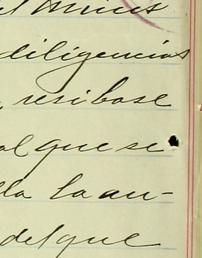 diligencias
, resibase
al que se
lla la au-
del que